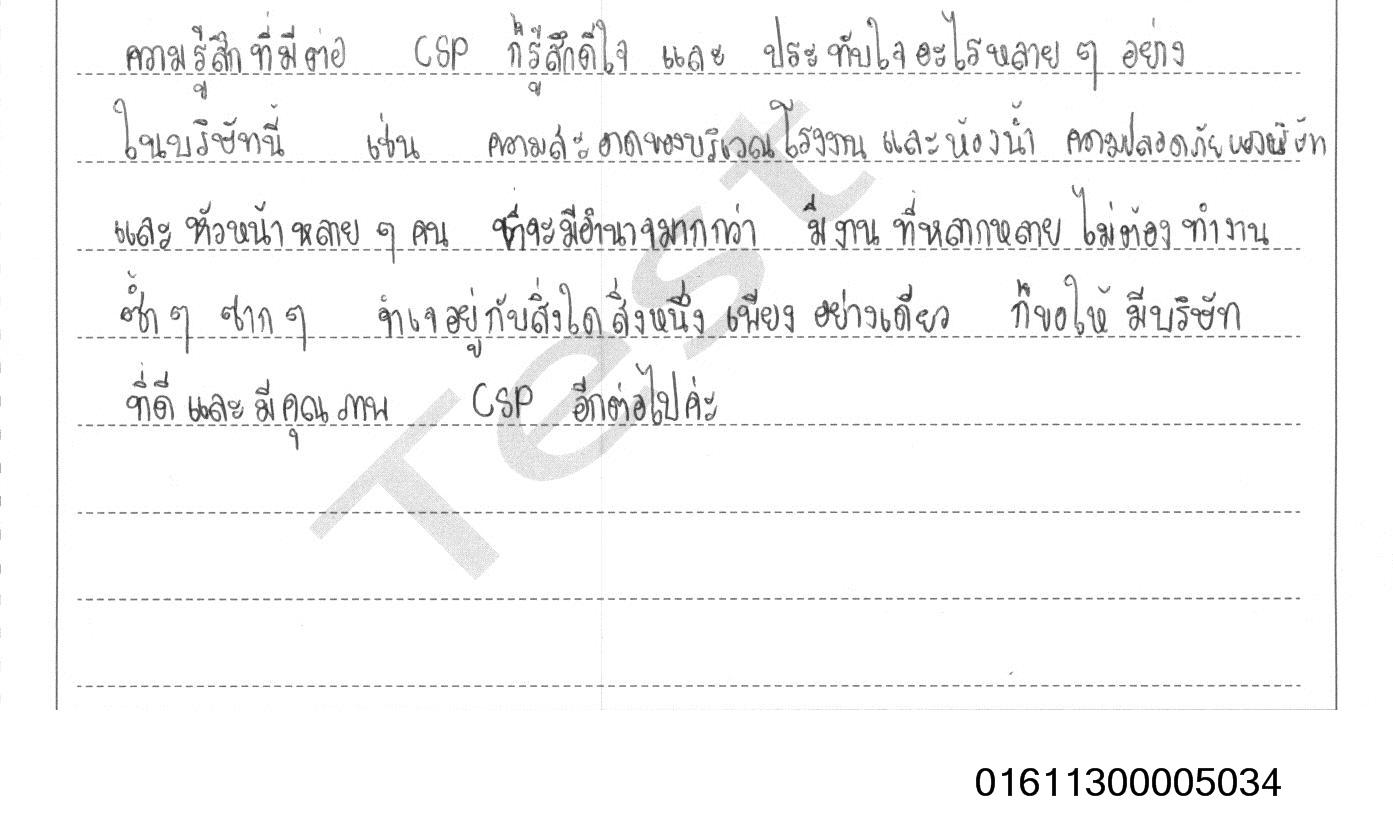 ความรู้สึกที่มีต่อ CSP ก็รู้สึกดีใจ และ ประทับใจอะไรหลาย ๆ อย่าง
ในบริษัทนี้ เช่น ความสะอาดของบริเวณโรงงาน และห้องน้ำ ความปลอดภัยของบริษัท
และ หัวหน้าหลาย ๆ คน ที่จะมีอำนาจมากกว่า มีงาน ที่หลากหลาย ไม่ต้อง ทำงาน
ซ้ำๆ ซากๆ จำเจอยู่กับสิ่งใดสิ่งหนึ่ง เพียง อย่างเดียว ก็ขอให้ มีบริษัท
ที่ดี และ มีคุณภาพ CSP อีกต่อไปค่ะ
Test
01611300005034